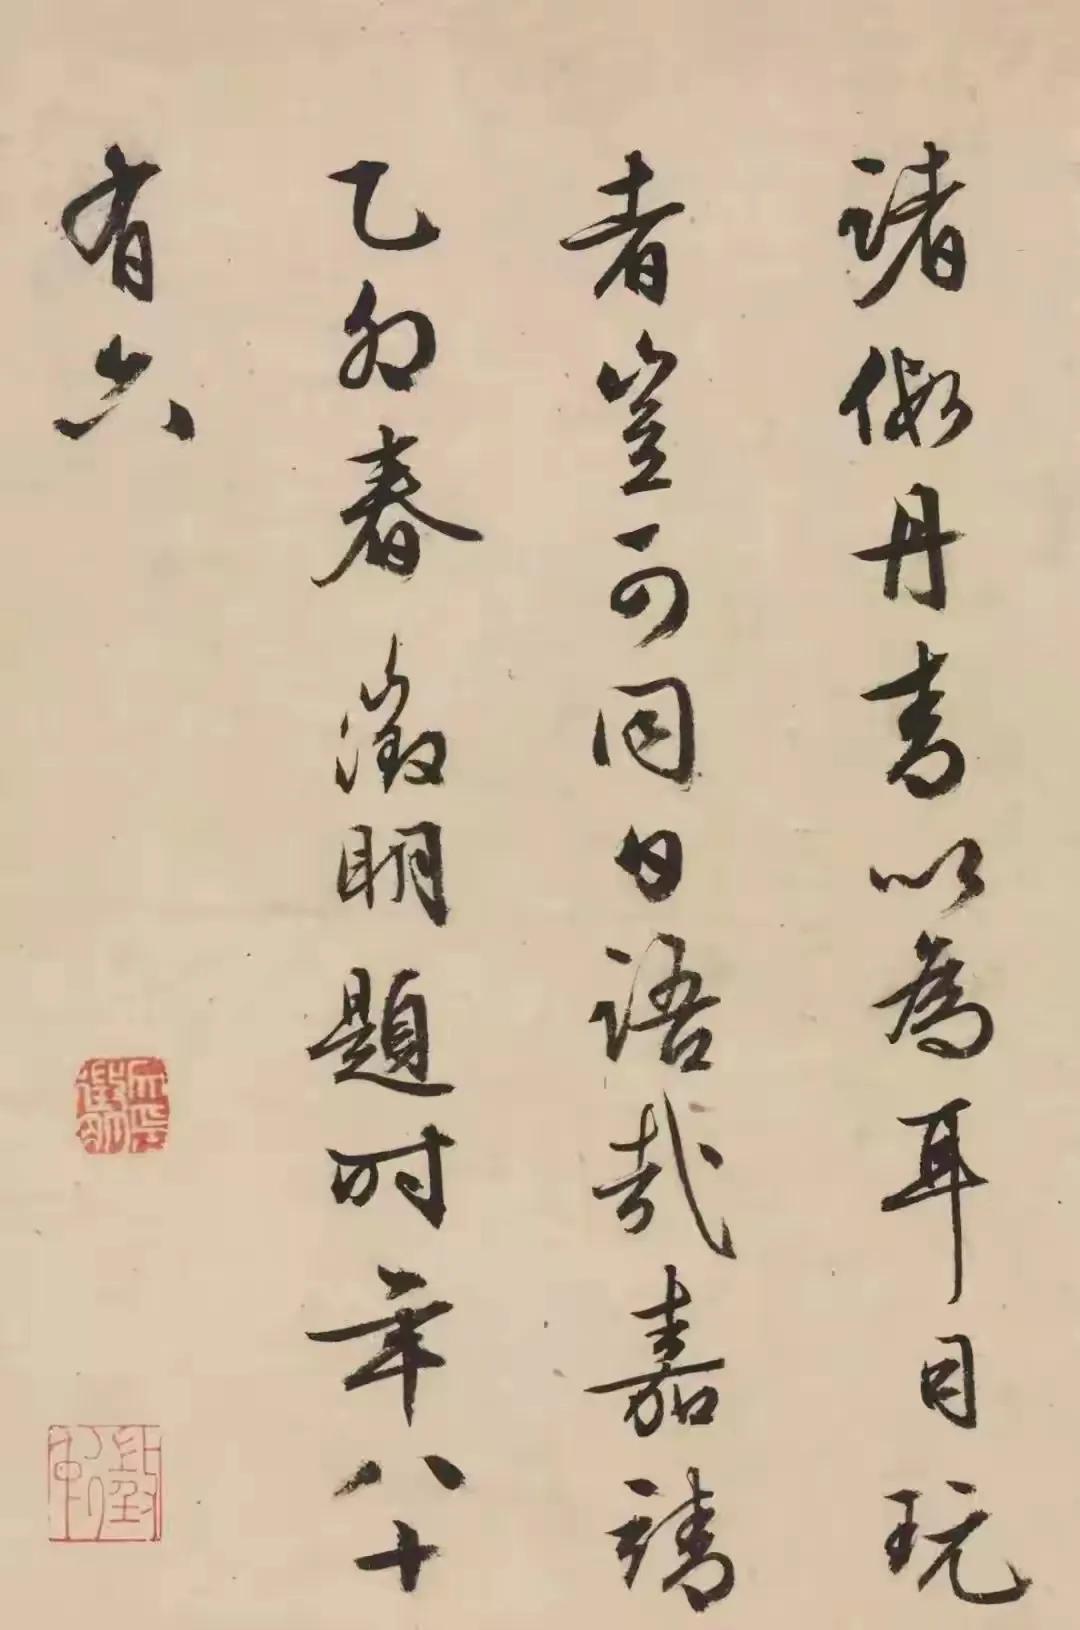 諸假丹青以為耳目玩
者豈可同日語哉嘉靖
乙卯春徵明題時年八十
有六